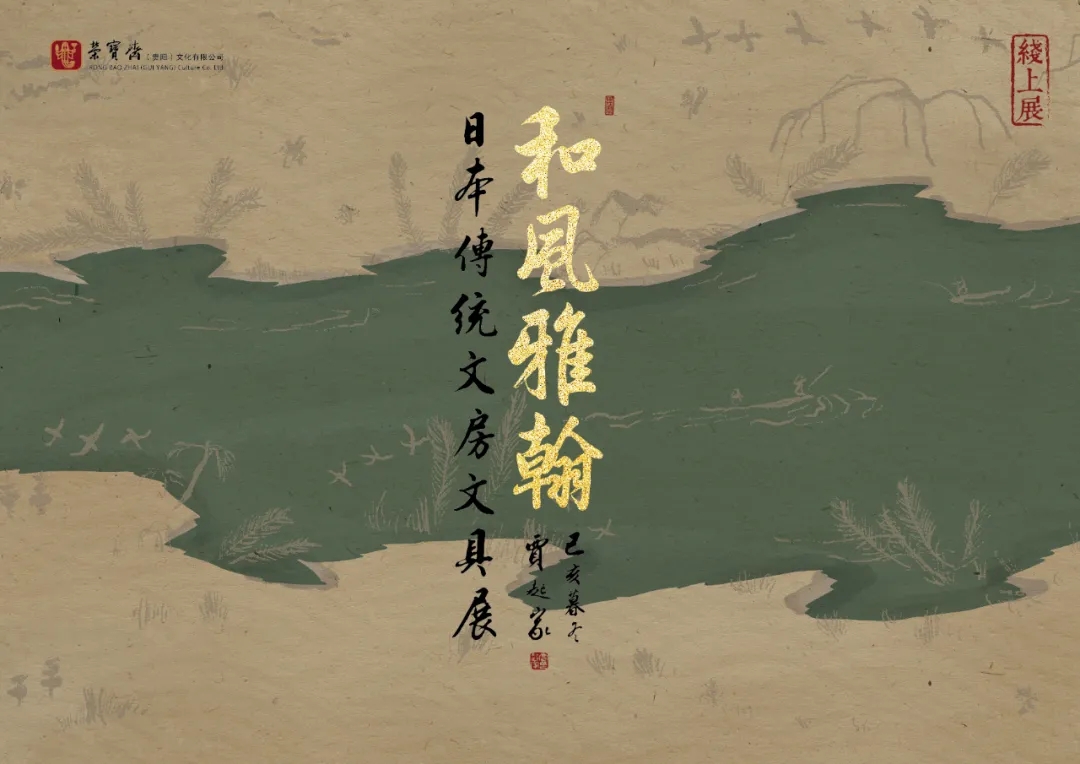 榮寶齋(贵阳)文化有限公司
RONG BAO ZHAI (GUI YANG) Culture Co. Ltd
綫上展
和風雅翰
日本傳统文房文具展
己亥暮冬